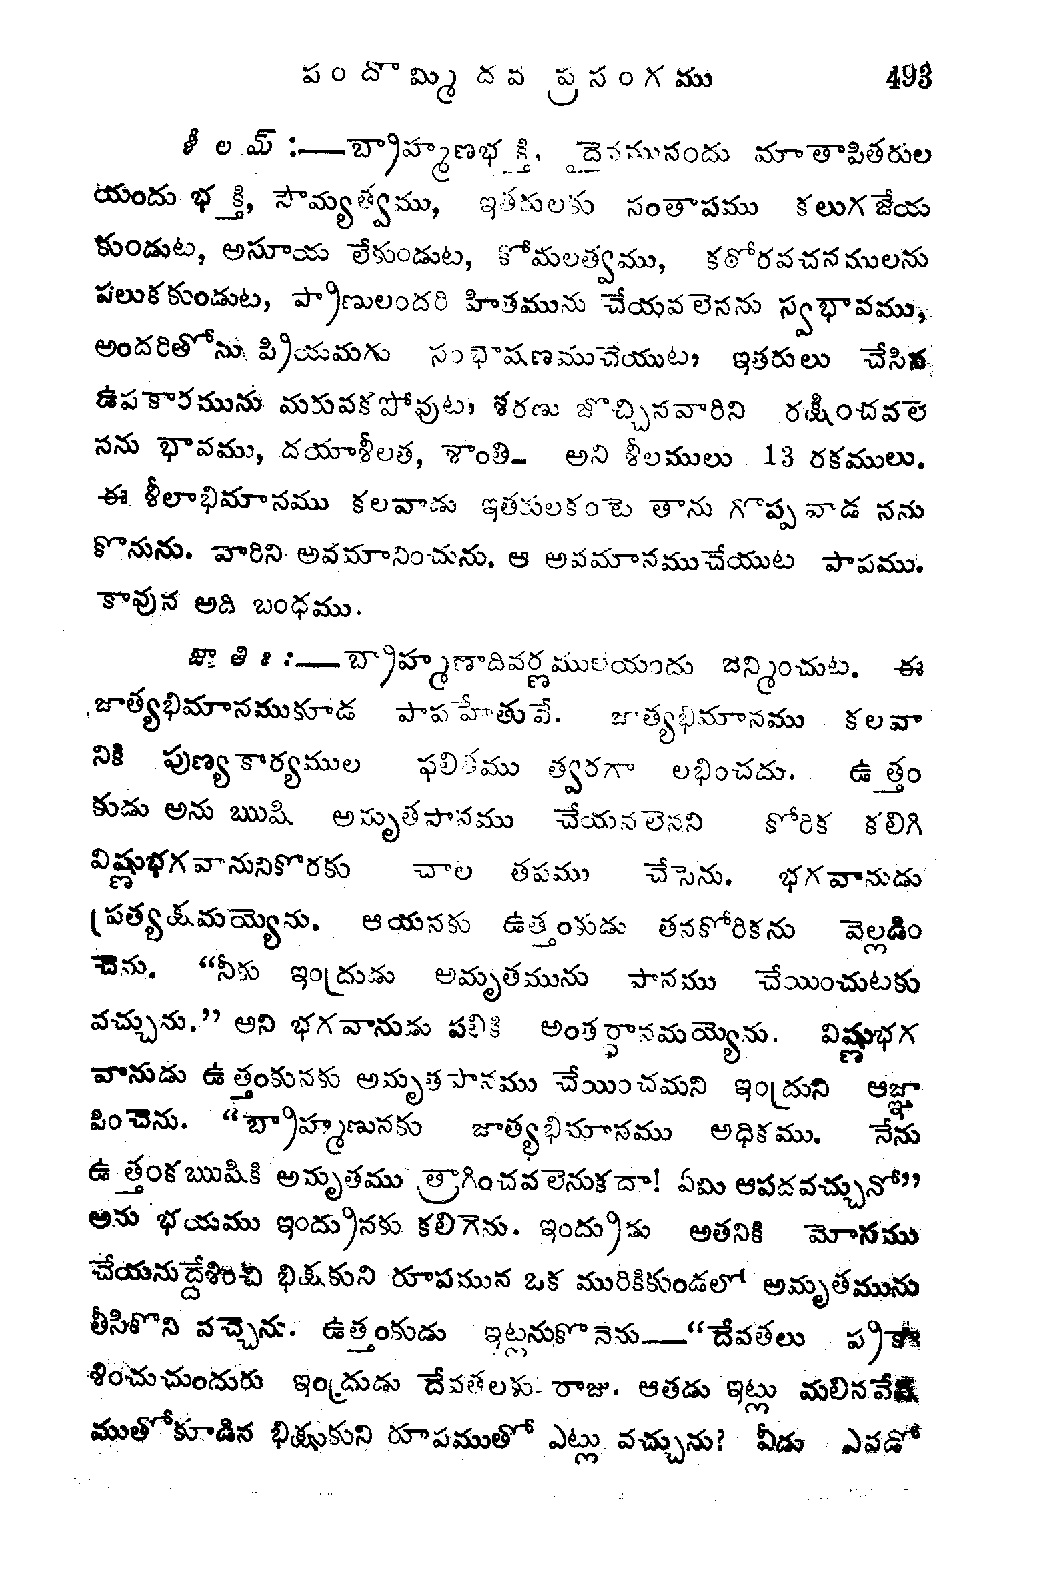 పందొమ్మిదవ ప్రసంగము 493
శీలమ్ :—బ్రాహ్మణభక్తి, దైవమునందు మాతాపితరుల
యందు భక్తి, సౌమ్యత్వము, ఇతరులకు సంతాపము కలుగజేయ
కుండుట, అసూయ లేకుండుట, కోమలత్వము, కఠోరవచనములను
పలుకకుండుట, ప్రాణులందరి హితమును చేయవలెనను స్వభావము,
అందరితోను ప్రియమగు సంభాషణముచేయుట, ఇతరులు చేసిన
ఉపకారమును మరువకపోవుట, శరణు జొచ్చినవారిని రక్షించవలె
నను భావము, దయాశీలత, శాంతి- అని శీలములు 13 రకములు.
ఈ శీలాభిమానము కలవాడు ఇతరులకంటె తాను గొప్పవాడ నను
కొనును. వారిని అవమానించును. ఆ అవమానముచేయుట పాపము.
కావున అది బంధము.
జాతిః :—బ్రాహ్మణాదివర్ణములయందు జన్మించుట. ఈ
జాత్యభిమానముకూడ పాపహేతువే. జాత్యభిమానము కలవా
నికి పుణ్యకార్యముల ఫలితము త్వరగా లభించదు. ఉత్తం
కుడు అను ఋషి అమృతపానము చేయవలెనని కోరిక కలిగి
విష్ణుభగవానునికొరకు చాల తపము చేసెను. భగవానుడు
ప్రత్యక్షమయ్యెను. ఆయనకు ఉత్తంకుడు తనకోరికను వెల్లడిం
చెను. “నీకు ఇంద్రుడు అమృతమును పానము చేయించుటకు
వచ్చును.” అని భగవానుడు పలికి అంతర్ధానమయ్యెను. విష్ణుభగ
వానుడు ఉత్తంకునకు అమృతపానము చేయించమని ఇంద్రుని ఆజ్ఞా
పించెను. “బ్రాహ్మణునకు జాత్యభిమానము అధికము. నేను
ఉత్తంకఋషికి అమృతము త్రాగించవలెనుకదా! ఏమి ఆపదవచ్చునో”
అను భయము ఇంద్రునకు కలిగెను. ఇంద్రుడు అతనికి మోసము
చేయనుద్దేశించి భిక్షకుని రూపమున ఒక మురికికుండలో అమృతమును
తీసికొని వచ్చెను. ఉత్తంకుడు ఇట్లనుకొనెను—“దేవతలు ప్రకా
శించుచుందురు ఇంద్రుడు దేవతలకు రాజు. ఆతడు ఇట్లు మలినవేష
ముతోకూడిన భిక్షుకుని రూపముతో ఎట్లు వచ్చును? వీడు ఎవడో